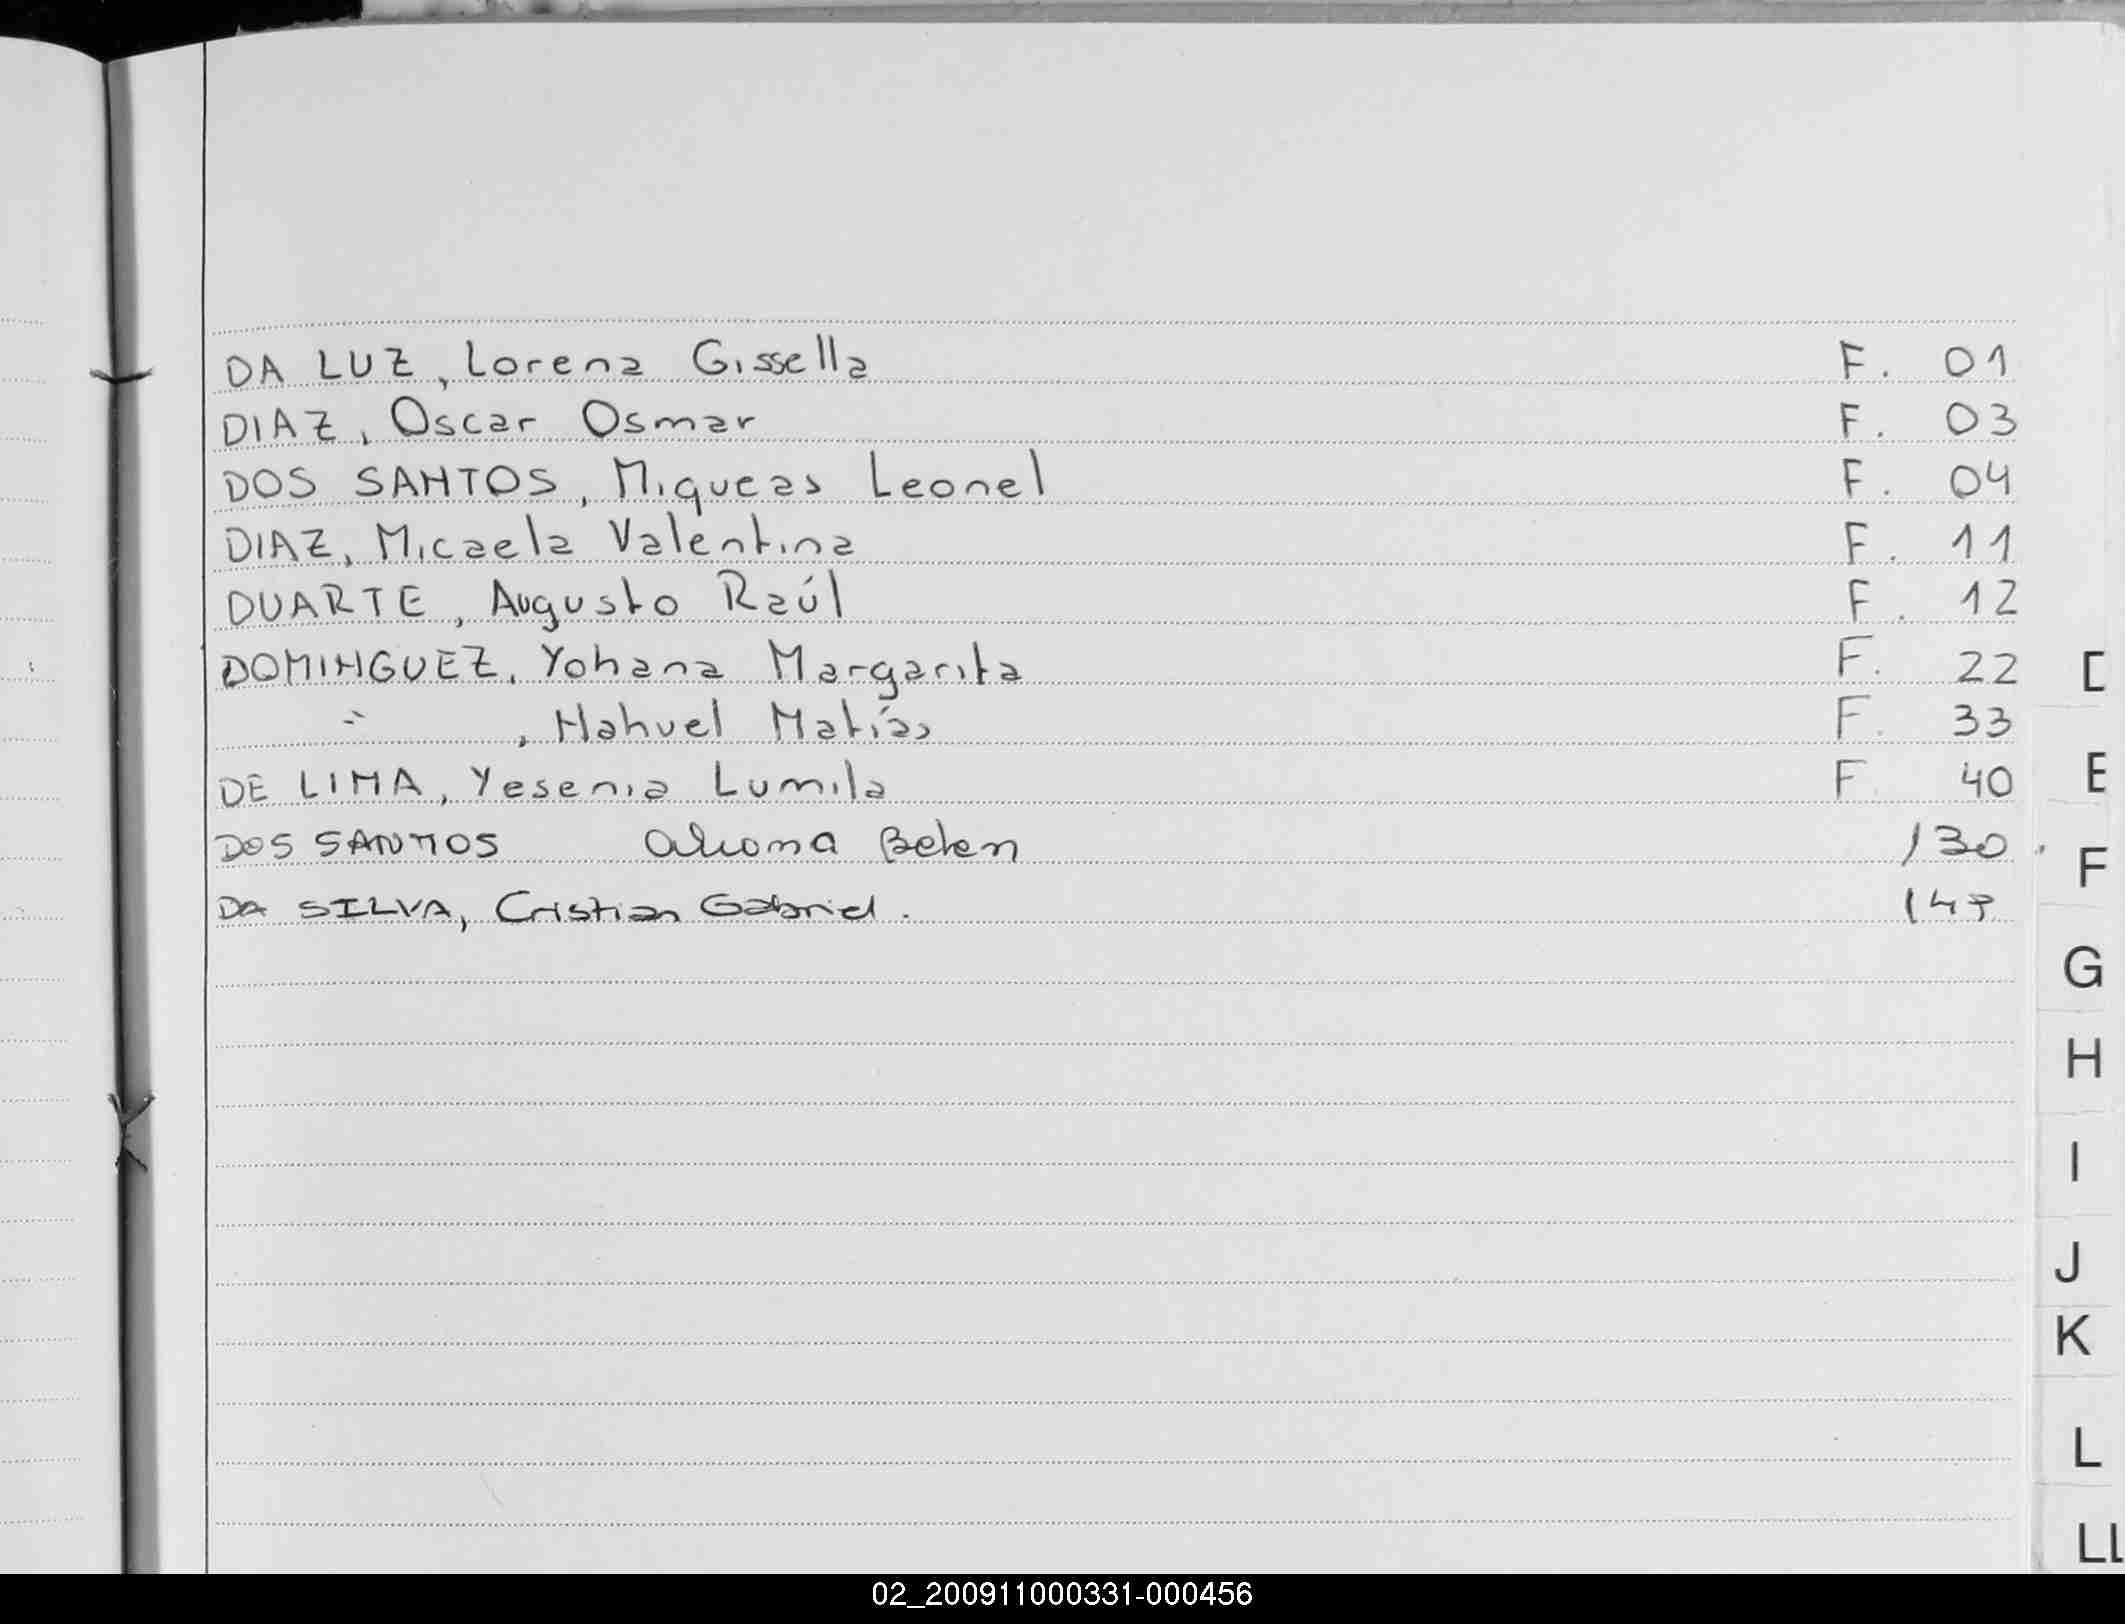 DA LUZ, Lorena Gissella F. 01
DIAZ, Oscar Osmar F. 03
DOS SANTOS, Miqueas Leonel F. 04
DIAZ, Micaela Valentina F. 11
DUARTE, Augusto Raúl F. 12
DOMINGUEZ, Yohana Margarita F. 22
" , Nahuel Matías F. 33
DE LIMA, Yesenia Lumila F 40
DOS SANTOS Belen 130
DA SILVA, Cristian Gabriel. 147
D
E
F
G
H
I
J
K
L
LL
02_200911000331-000456